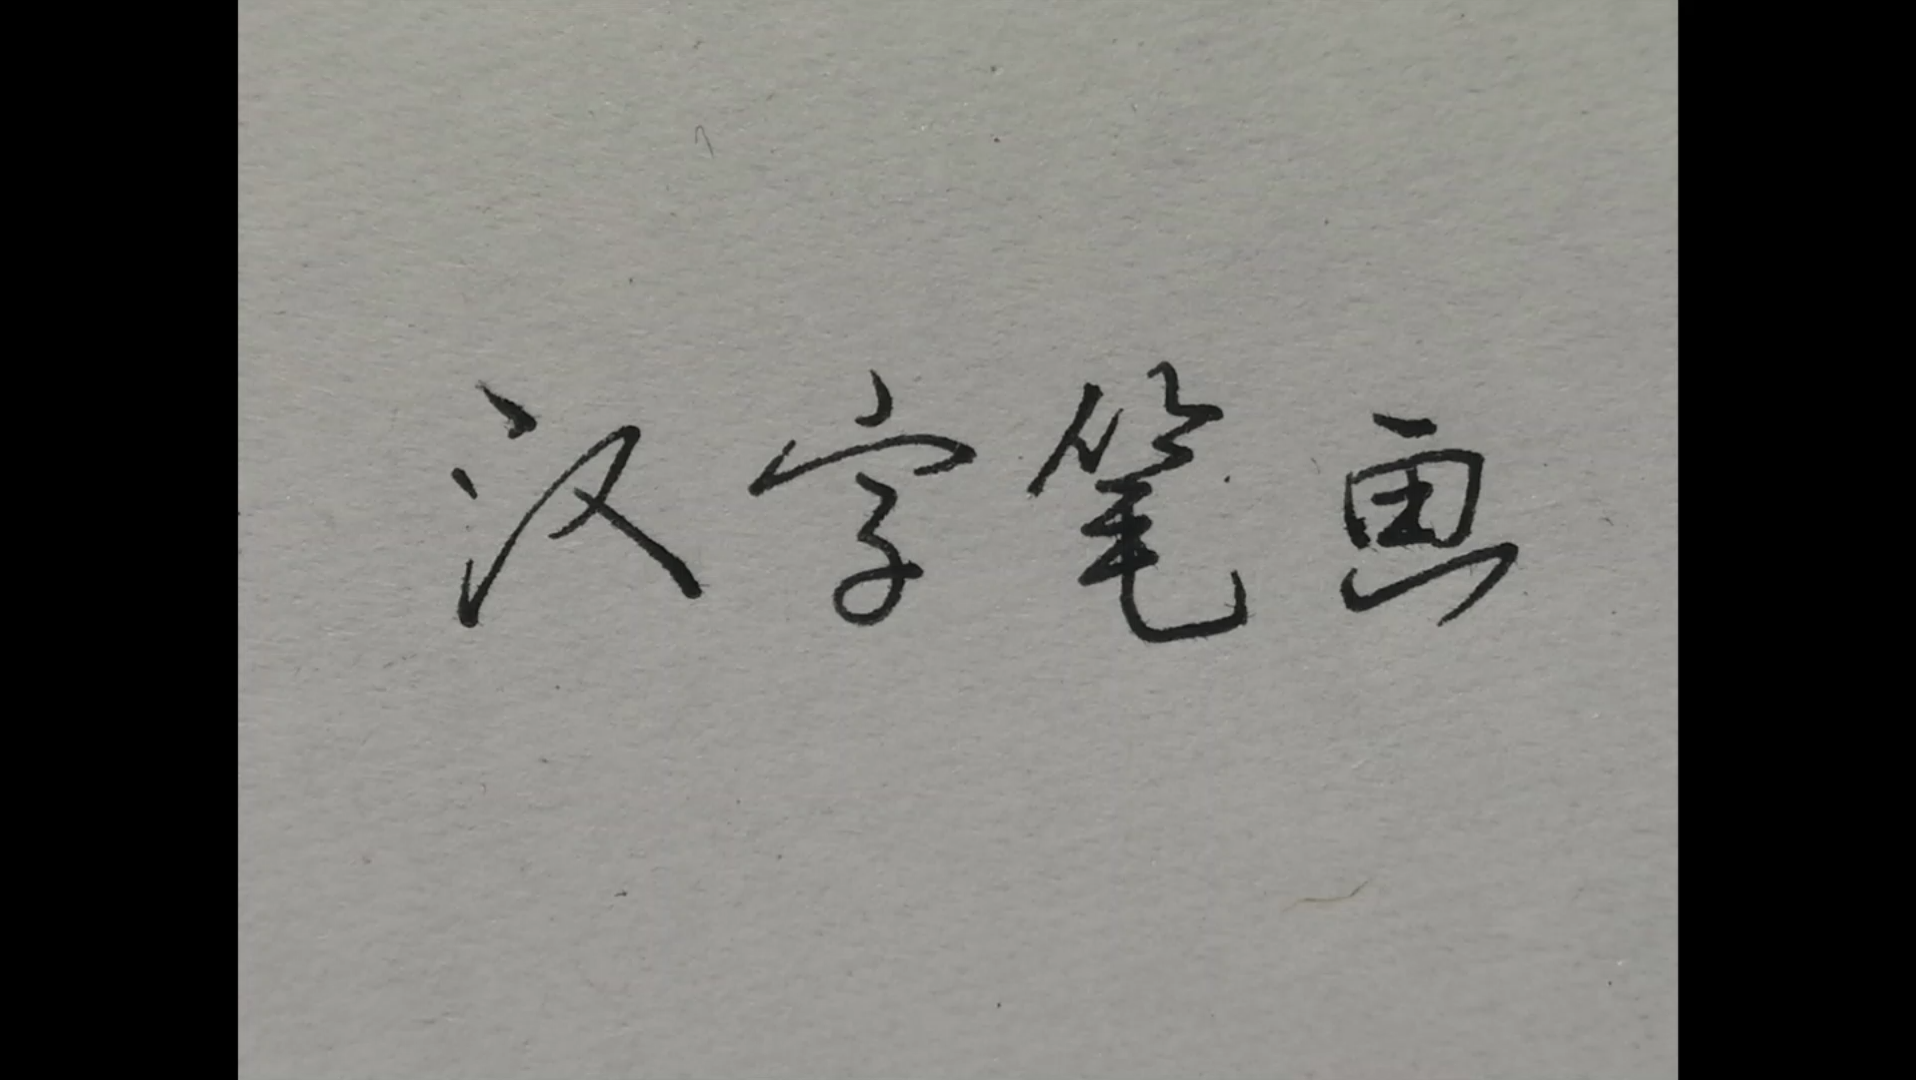 汉字笔画